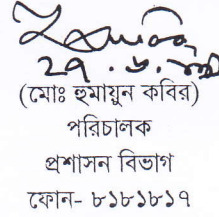 ২৭.৬.
(মোঃ হুমায়ুন কবির)
পরিচালক
প্রশাসন বিভাগ
ফোন- ৮১৮১৮১৭